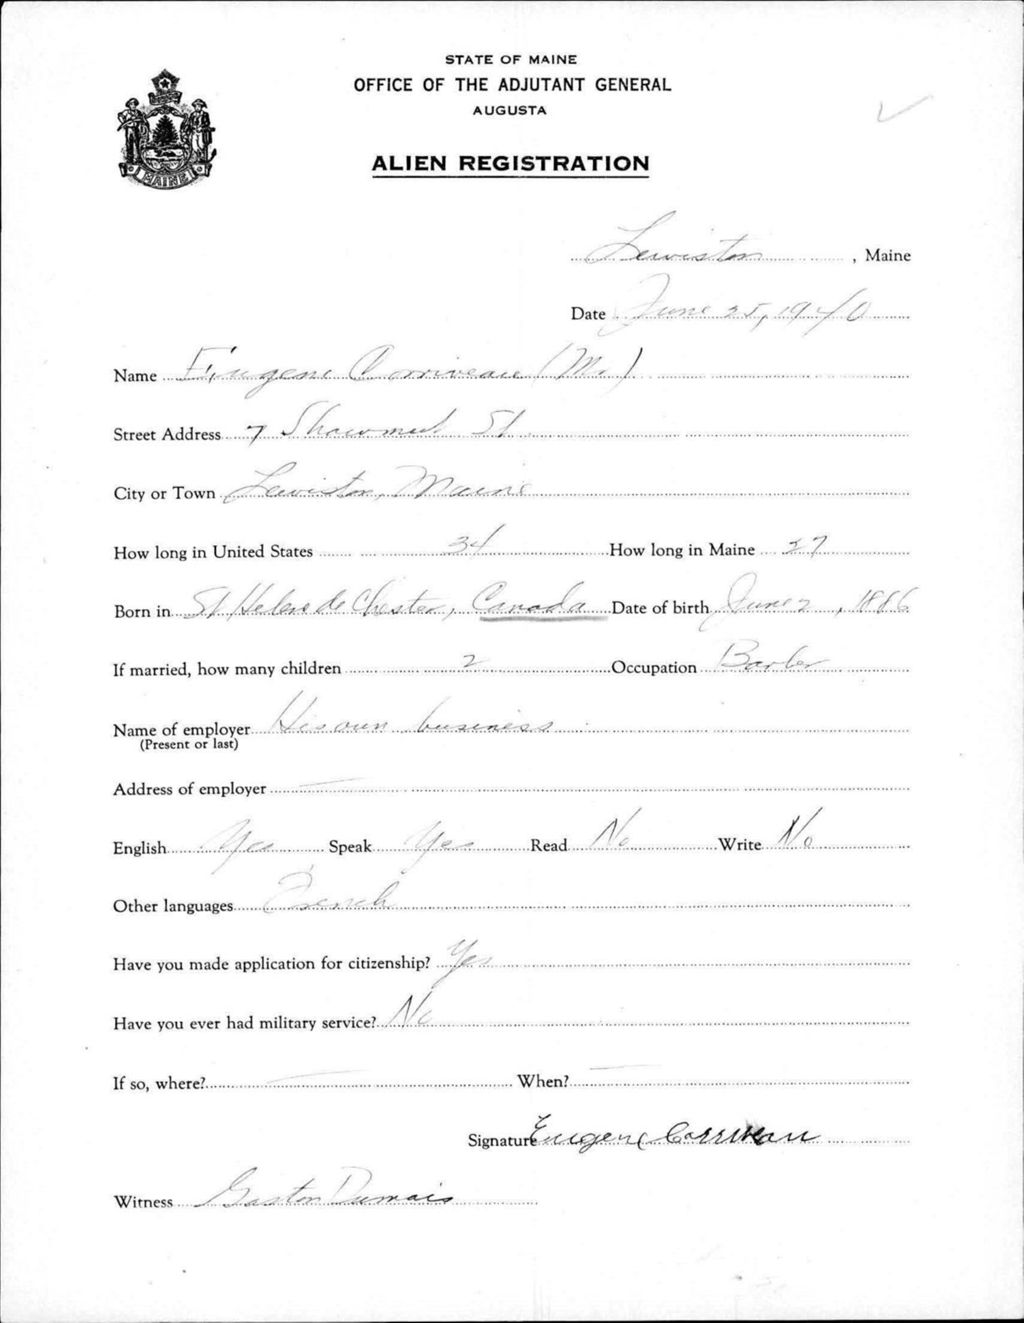 STATE OF MAINE
OFFICE OF THE ADJUTANT GENERAL
AUGUSTA
ALIEN REGISTRATION
MAINE
Lewiston, Maine
Date June 25, 1940
Name Eugene Corriveau (Mr)
Street Address 7 Shawmut St.
City or Town Lewiston, Maine
How long in United States 34 How long in Maine 27
Born in St Helene de Chester, Canada Date of birth June 2, 1886
If married, how many children 2 Occupation Barber
Name of employer His own business
(Present or last)
Address of employer —
English Yes Speak Yes Read No Write No
Other languages French
Have you made application for citizenship? Yes
Have you ever had military service? No
If so, where? — When? —
Signature Eugene Corriveau
Witness Gaston Dumais